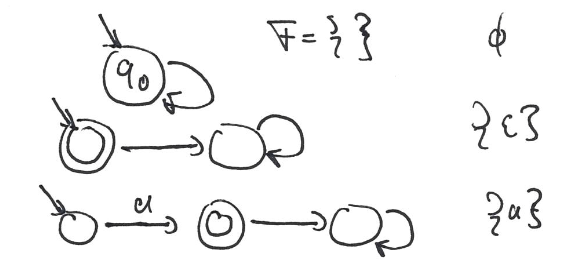 q0 F = { } ϕ
{ε}
a {a}